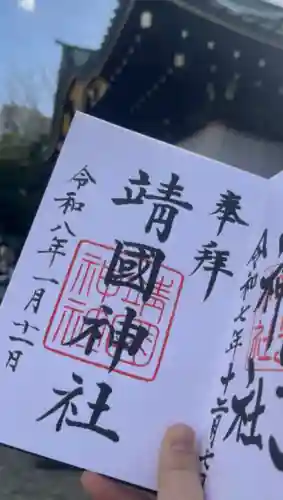 奉拝
靖國神社
靖國神社
令和八年一月十一日
令和七年十二月
神社